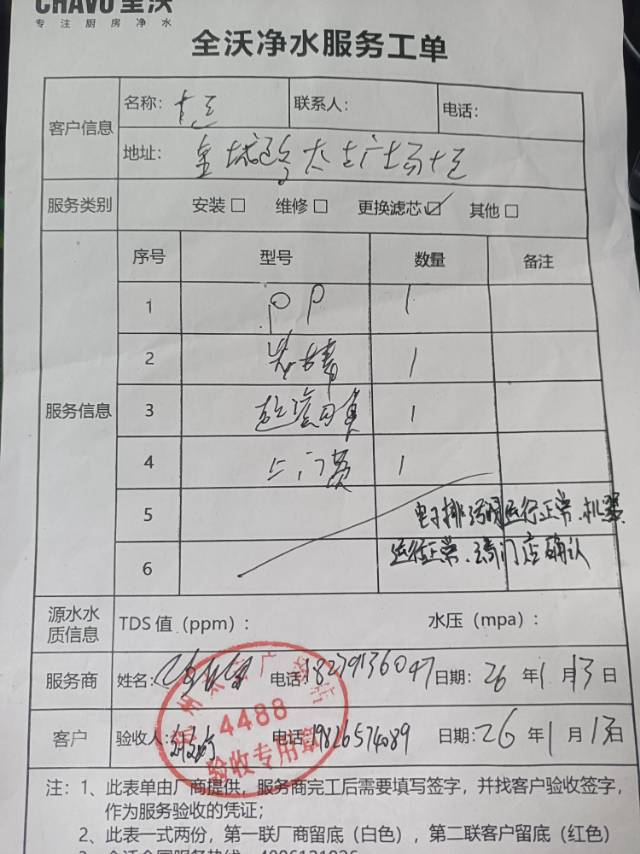 CHAVO 全沃
专注厨房净水
全沃净水服务工单
客户信息
名称：
联系人：
电话：
地址：
服务类别
安装 □ 维修 □ 更换滤芯 ☑ 其他 □
服务信息
序号 型号 数量 备注
1 PP 1
2 1
3 1
4 上门费 1
5
电子排污阀运行正常.机器
6
运行正常.请门店确认
源水水
质信息
TDS 值（ppm）： 水压（mpa）：
服务商
姓名： 电话：18279136047 日期：26 年 1 月 13 日
4488
验收专用章
客户
验收人： 电话：19826574089 日期：26 年 1 月 13 日
注：1、此表单由厂商提供，服务商完工后需要填写签字，并找客户验收签字，
作为服务验收的凭证；
2、此表一式两份，第一联厂商留底（白色），第二联客户留底（红色）